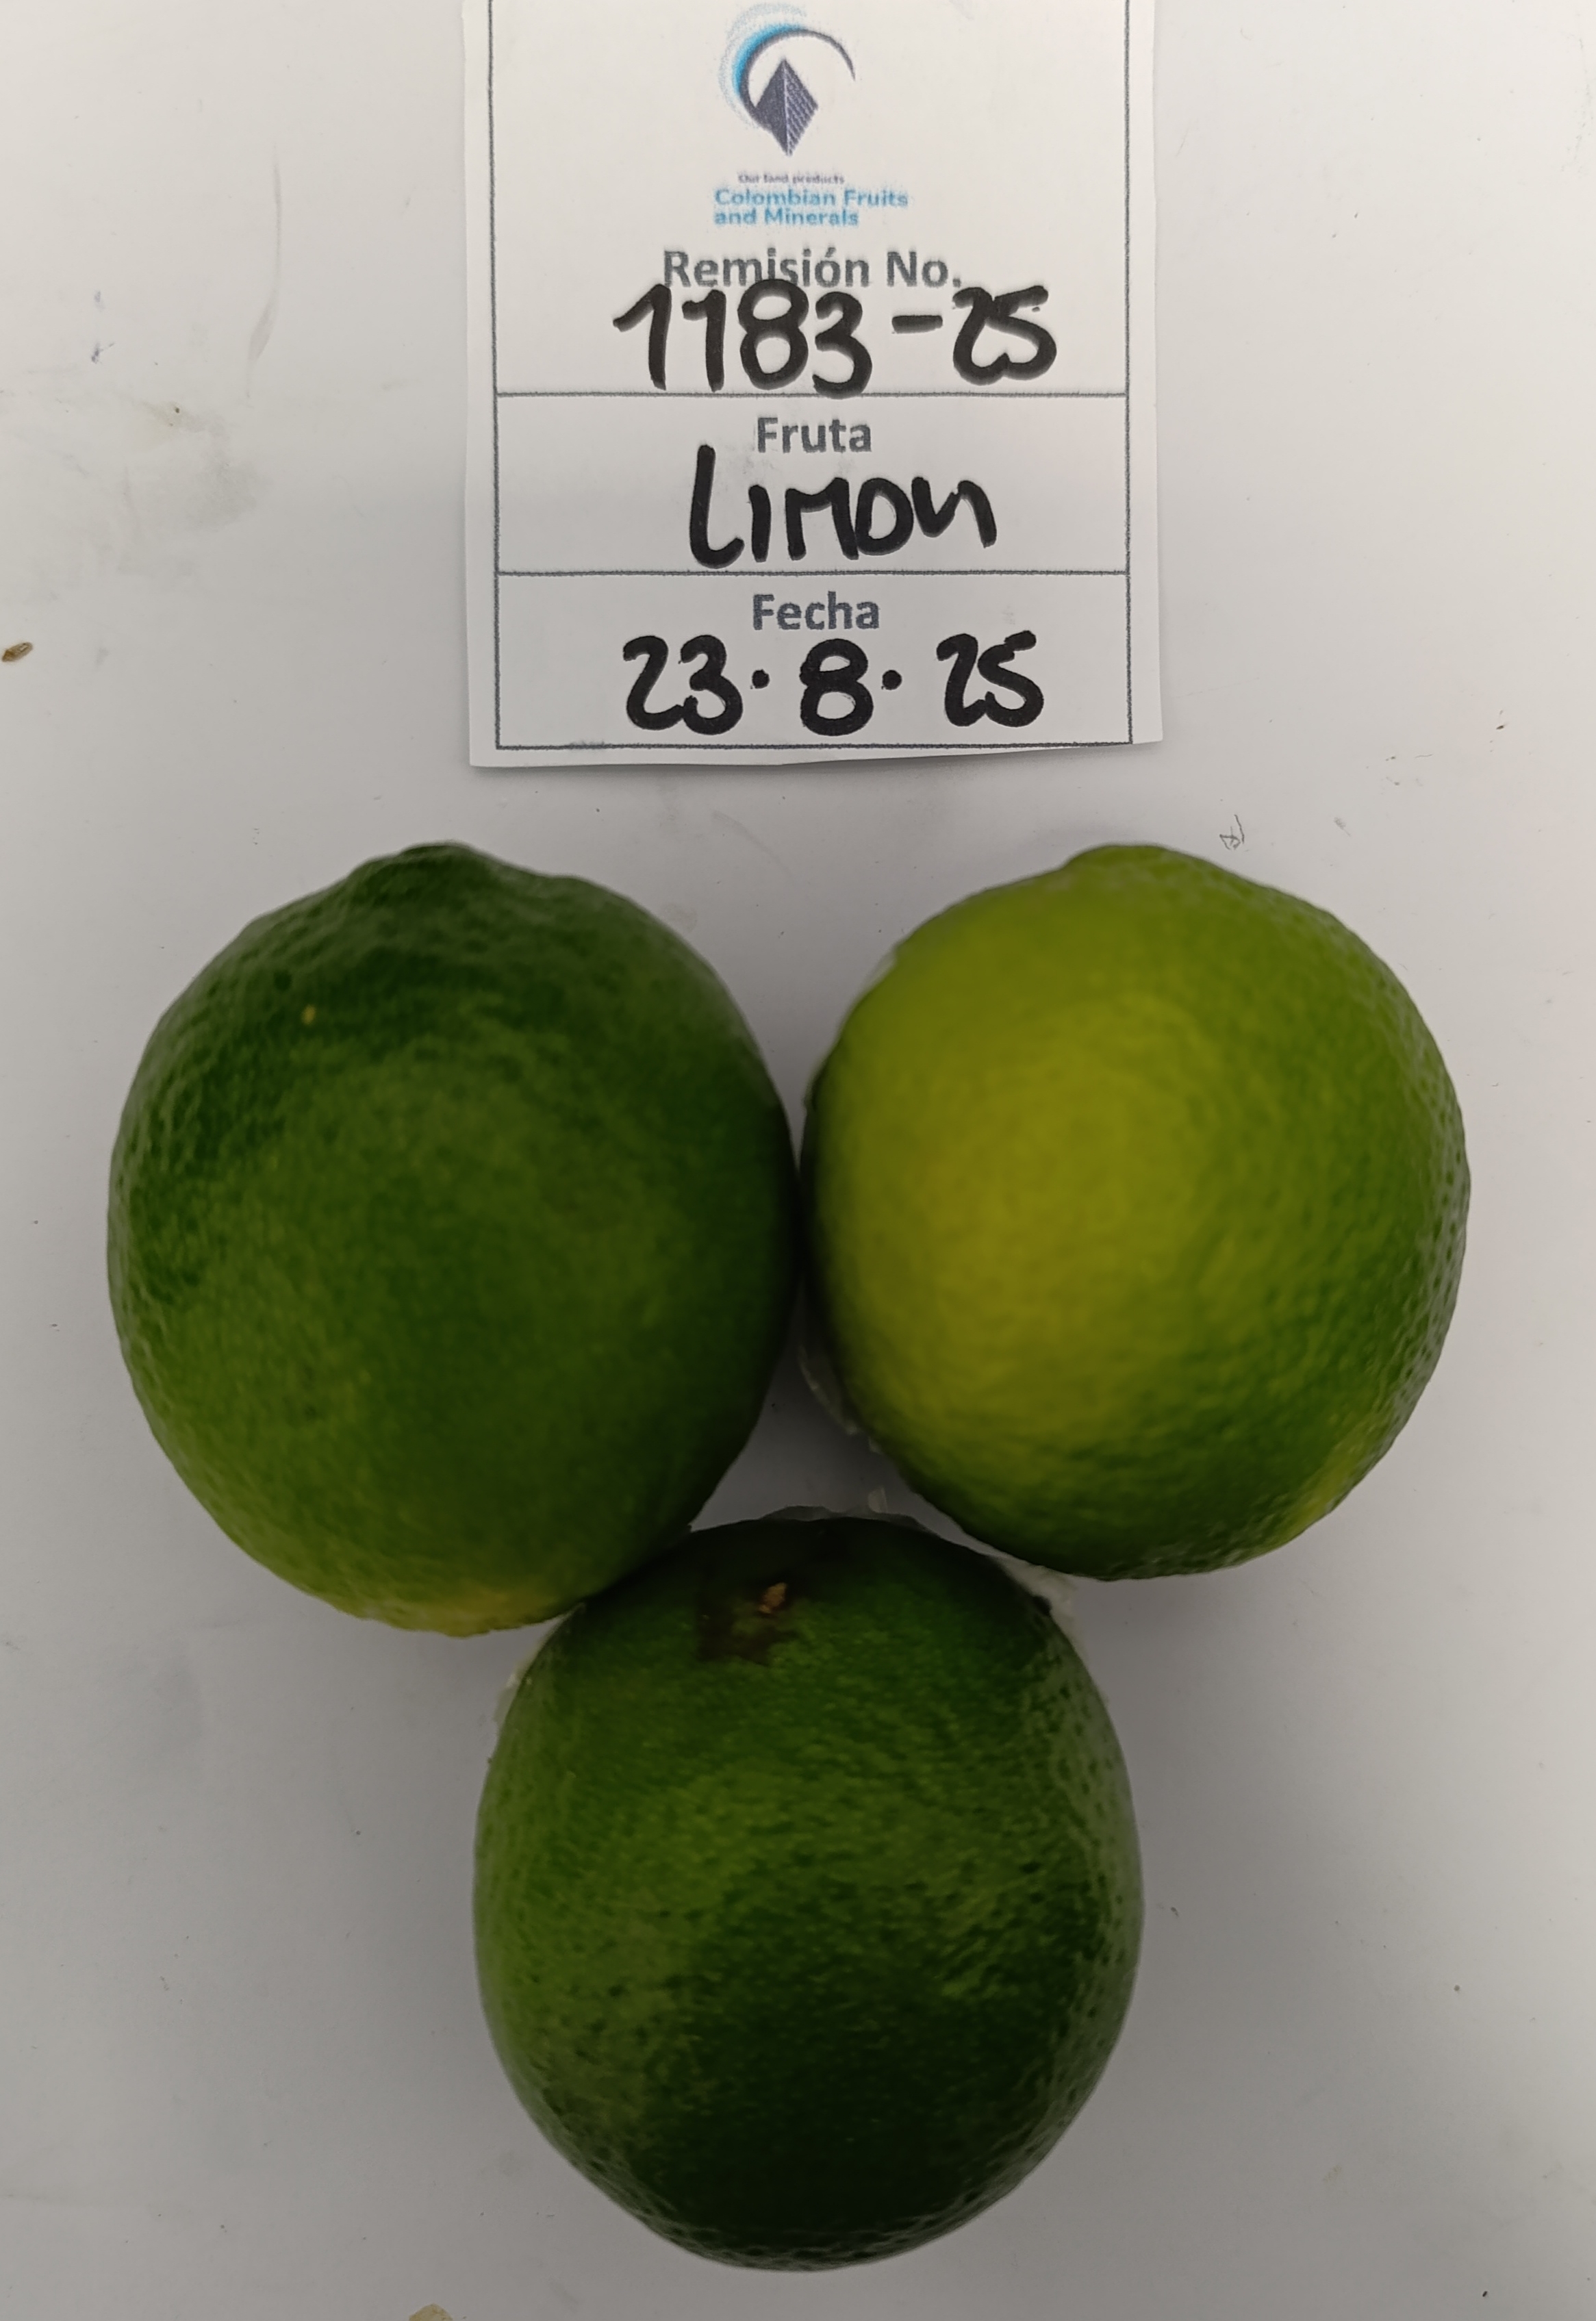 Our land products
Colombian Fruits
and Minerals
Remisión No.
1183-25
Fruta
Limon
Fecha
23.8.25